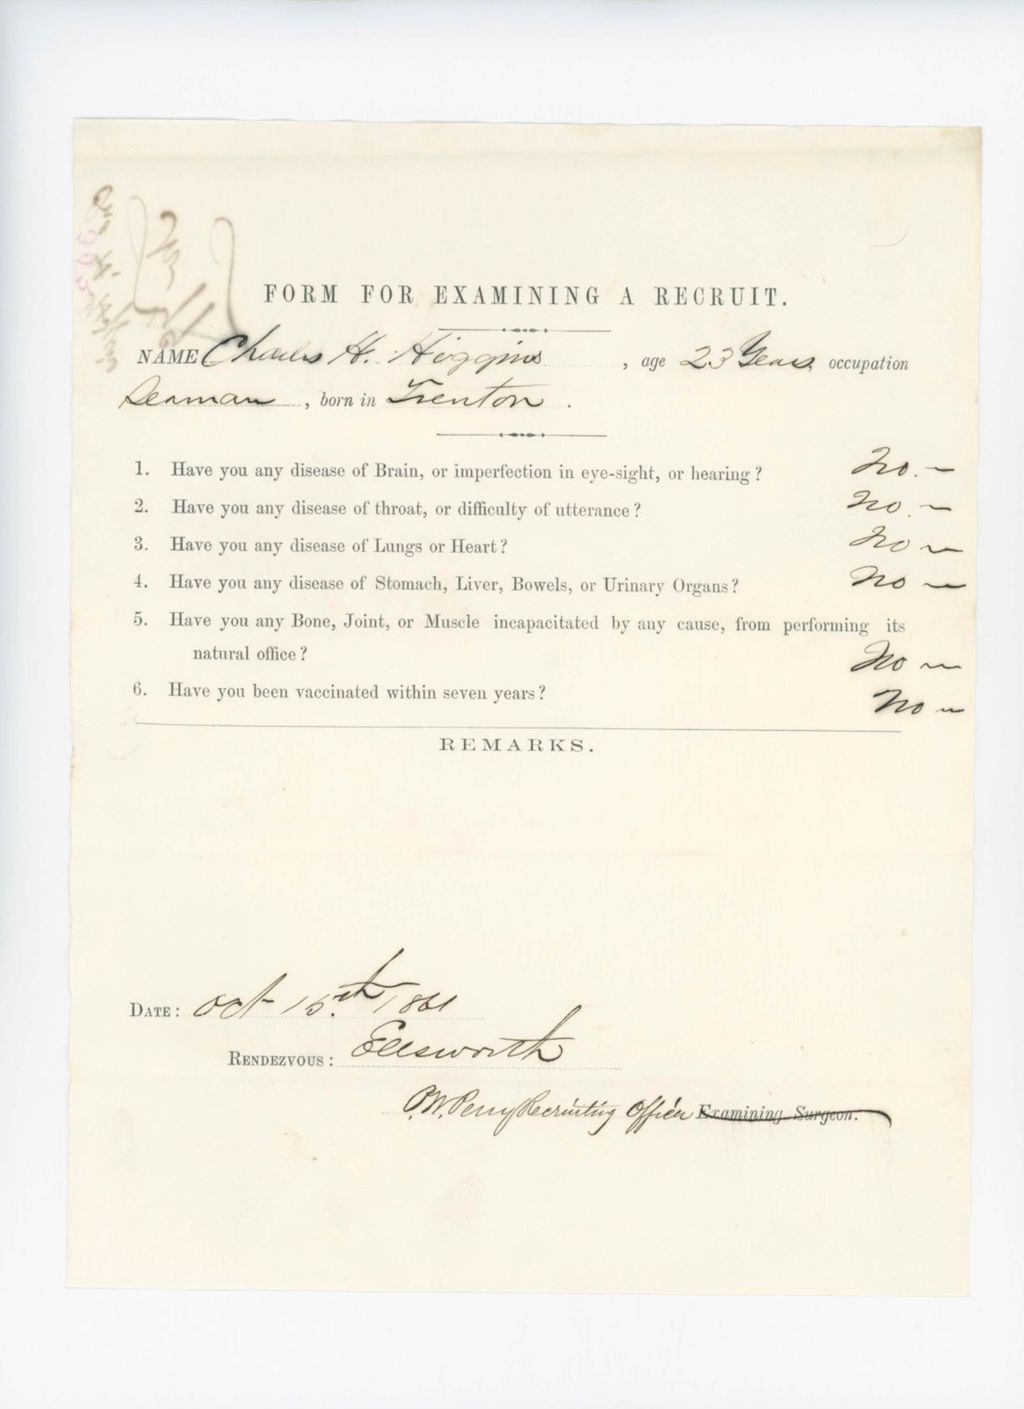 FORM FOR EXAMINING A RECRUIT.
NAME Charles H. Higgins , age 23 Years occupation
Seaman , born in Trenton .
1. Have you any disease of Brain, or imperfection in eye-sight, or hearing? No.
2. Have you any disease of throat, or difficulty of utterance? No.
3. Have you any disease of Lungs or Heart? No
4. Have you any disease of Stomach, Liver, Bowels, or Urinary Organs? No
5. Have you any Bone, Joint, or Muscle incapacitated by any cause, from performing its
natural office? No
6. Have you been vaccinated within seven years? No
REMARKS.
DATE: Oct 15th 1861
RENDEZVOUS: Ellsworth
P.W. Perry Recruiting Officer Examining Surgeon.